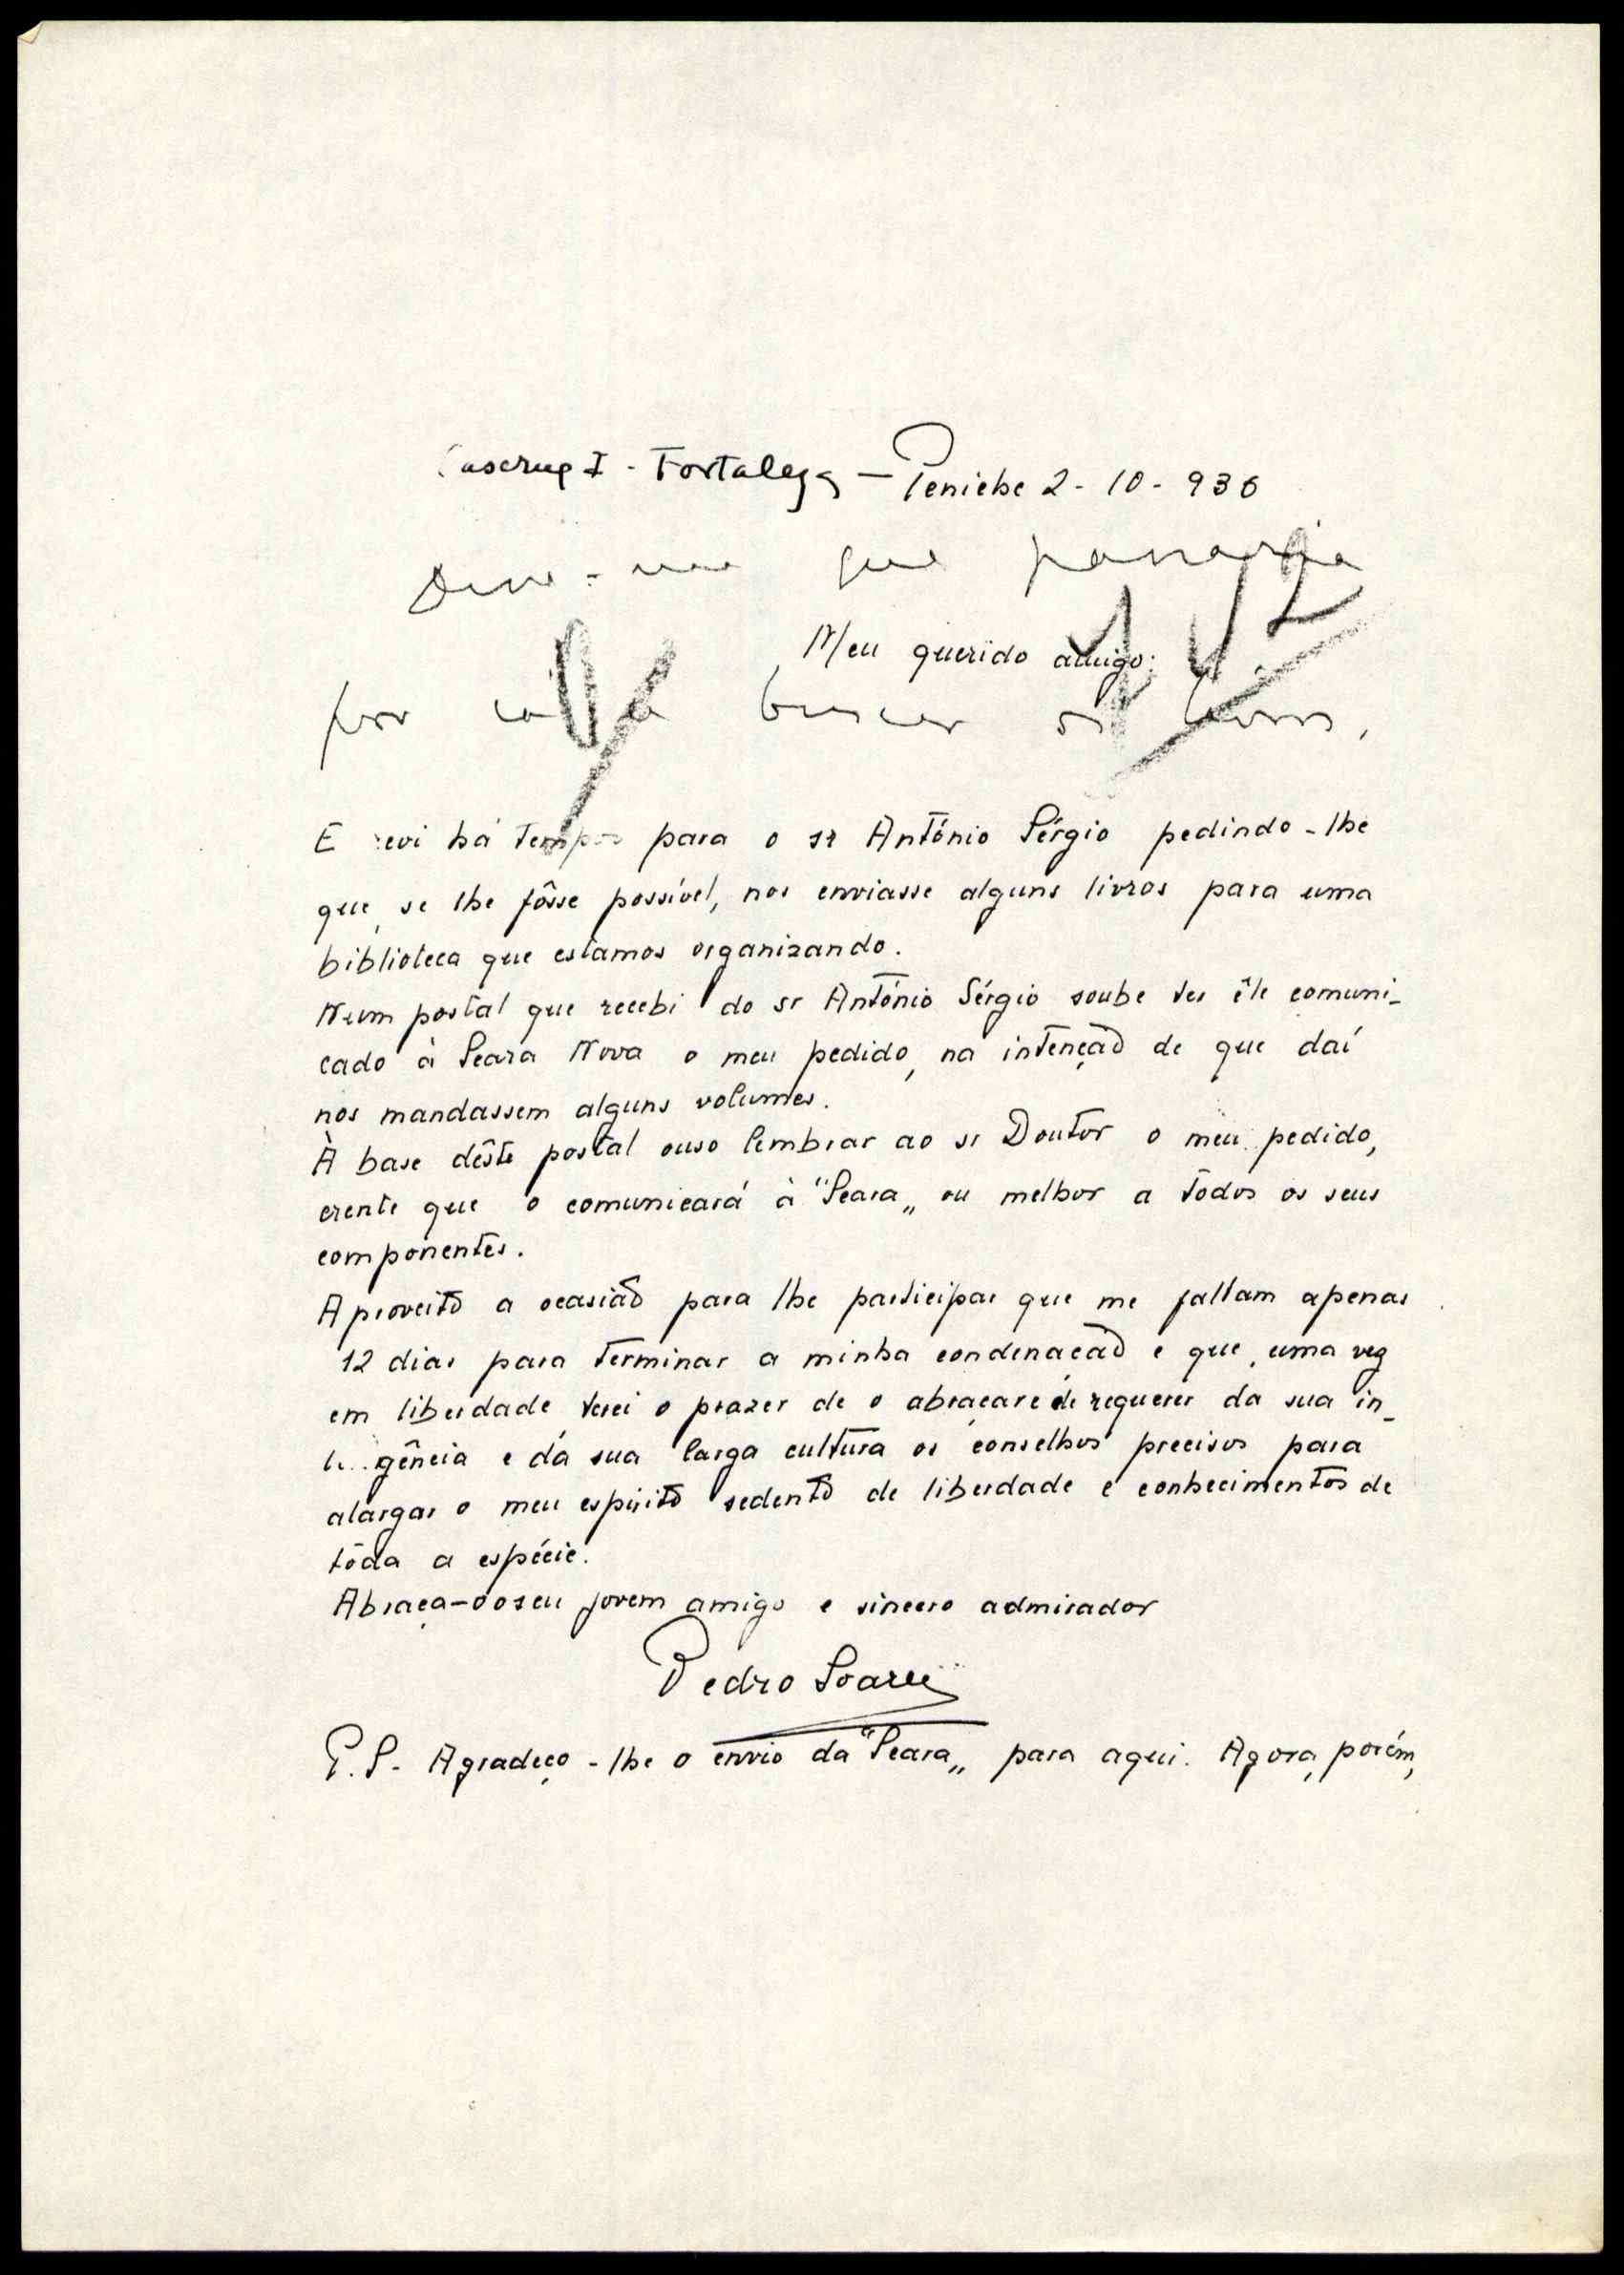 I - Fortaleza - Peniche 2-10-936
Disse-me que passaria
Meu querido amigo:
por cá a buscar os livros,
E revi há tempos para o sr António Sérgio pedindo-lhe
que, se lhe fôsse possível, nos enviasse alguns livros para uma
biblioteca que estamos organizando.
Num postal que recebi do sr António Sérgio soube ter êle comuni-
cado à Seara Nova o meu pedido, na intenção de que daí
nos mandassem alguns volumes.
À base dêste postal ouso lembrar ao sr Doutor o meu pedido,
crente que o comunicará à "Seara„ ou melhor a todos os seus
componentes.
Aproveito a ocasião para lhe participar que me faltam apenas
12 dias para terminar a minha condenação e que, uma vez
em liberdade, terei o prazer de o abraçar e de requerer da sua in-
gência e da sua larga cultura os conselhos precisos para
alargar o meu espírito sedento de liberdade e conhecimentos de
tôda a espécie.
Abraça-o o seu jovem amigo e sincero admirador
Pedro Soares
P.S. Agradeço-lhe o envio da "Seara„ para aqui. Agora, porém,